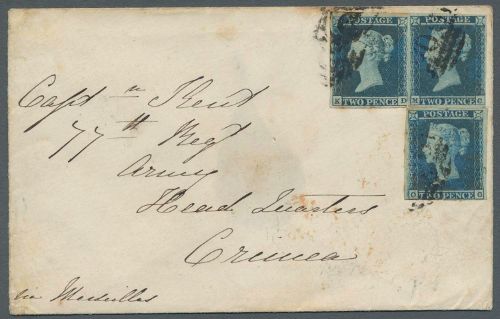 POSTAGE POSTAGE
TWO PENCE TWO PENCE
POSTAGE
TWO PENCE
Captn Kent
77th Regt
Army
Head Quarters
Crimea
via Marseilles